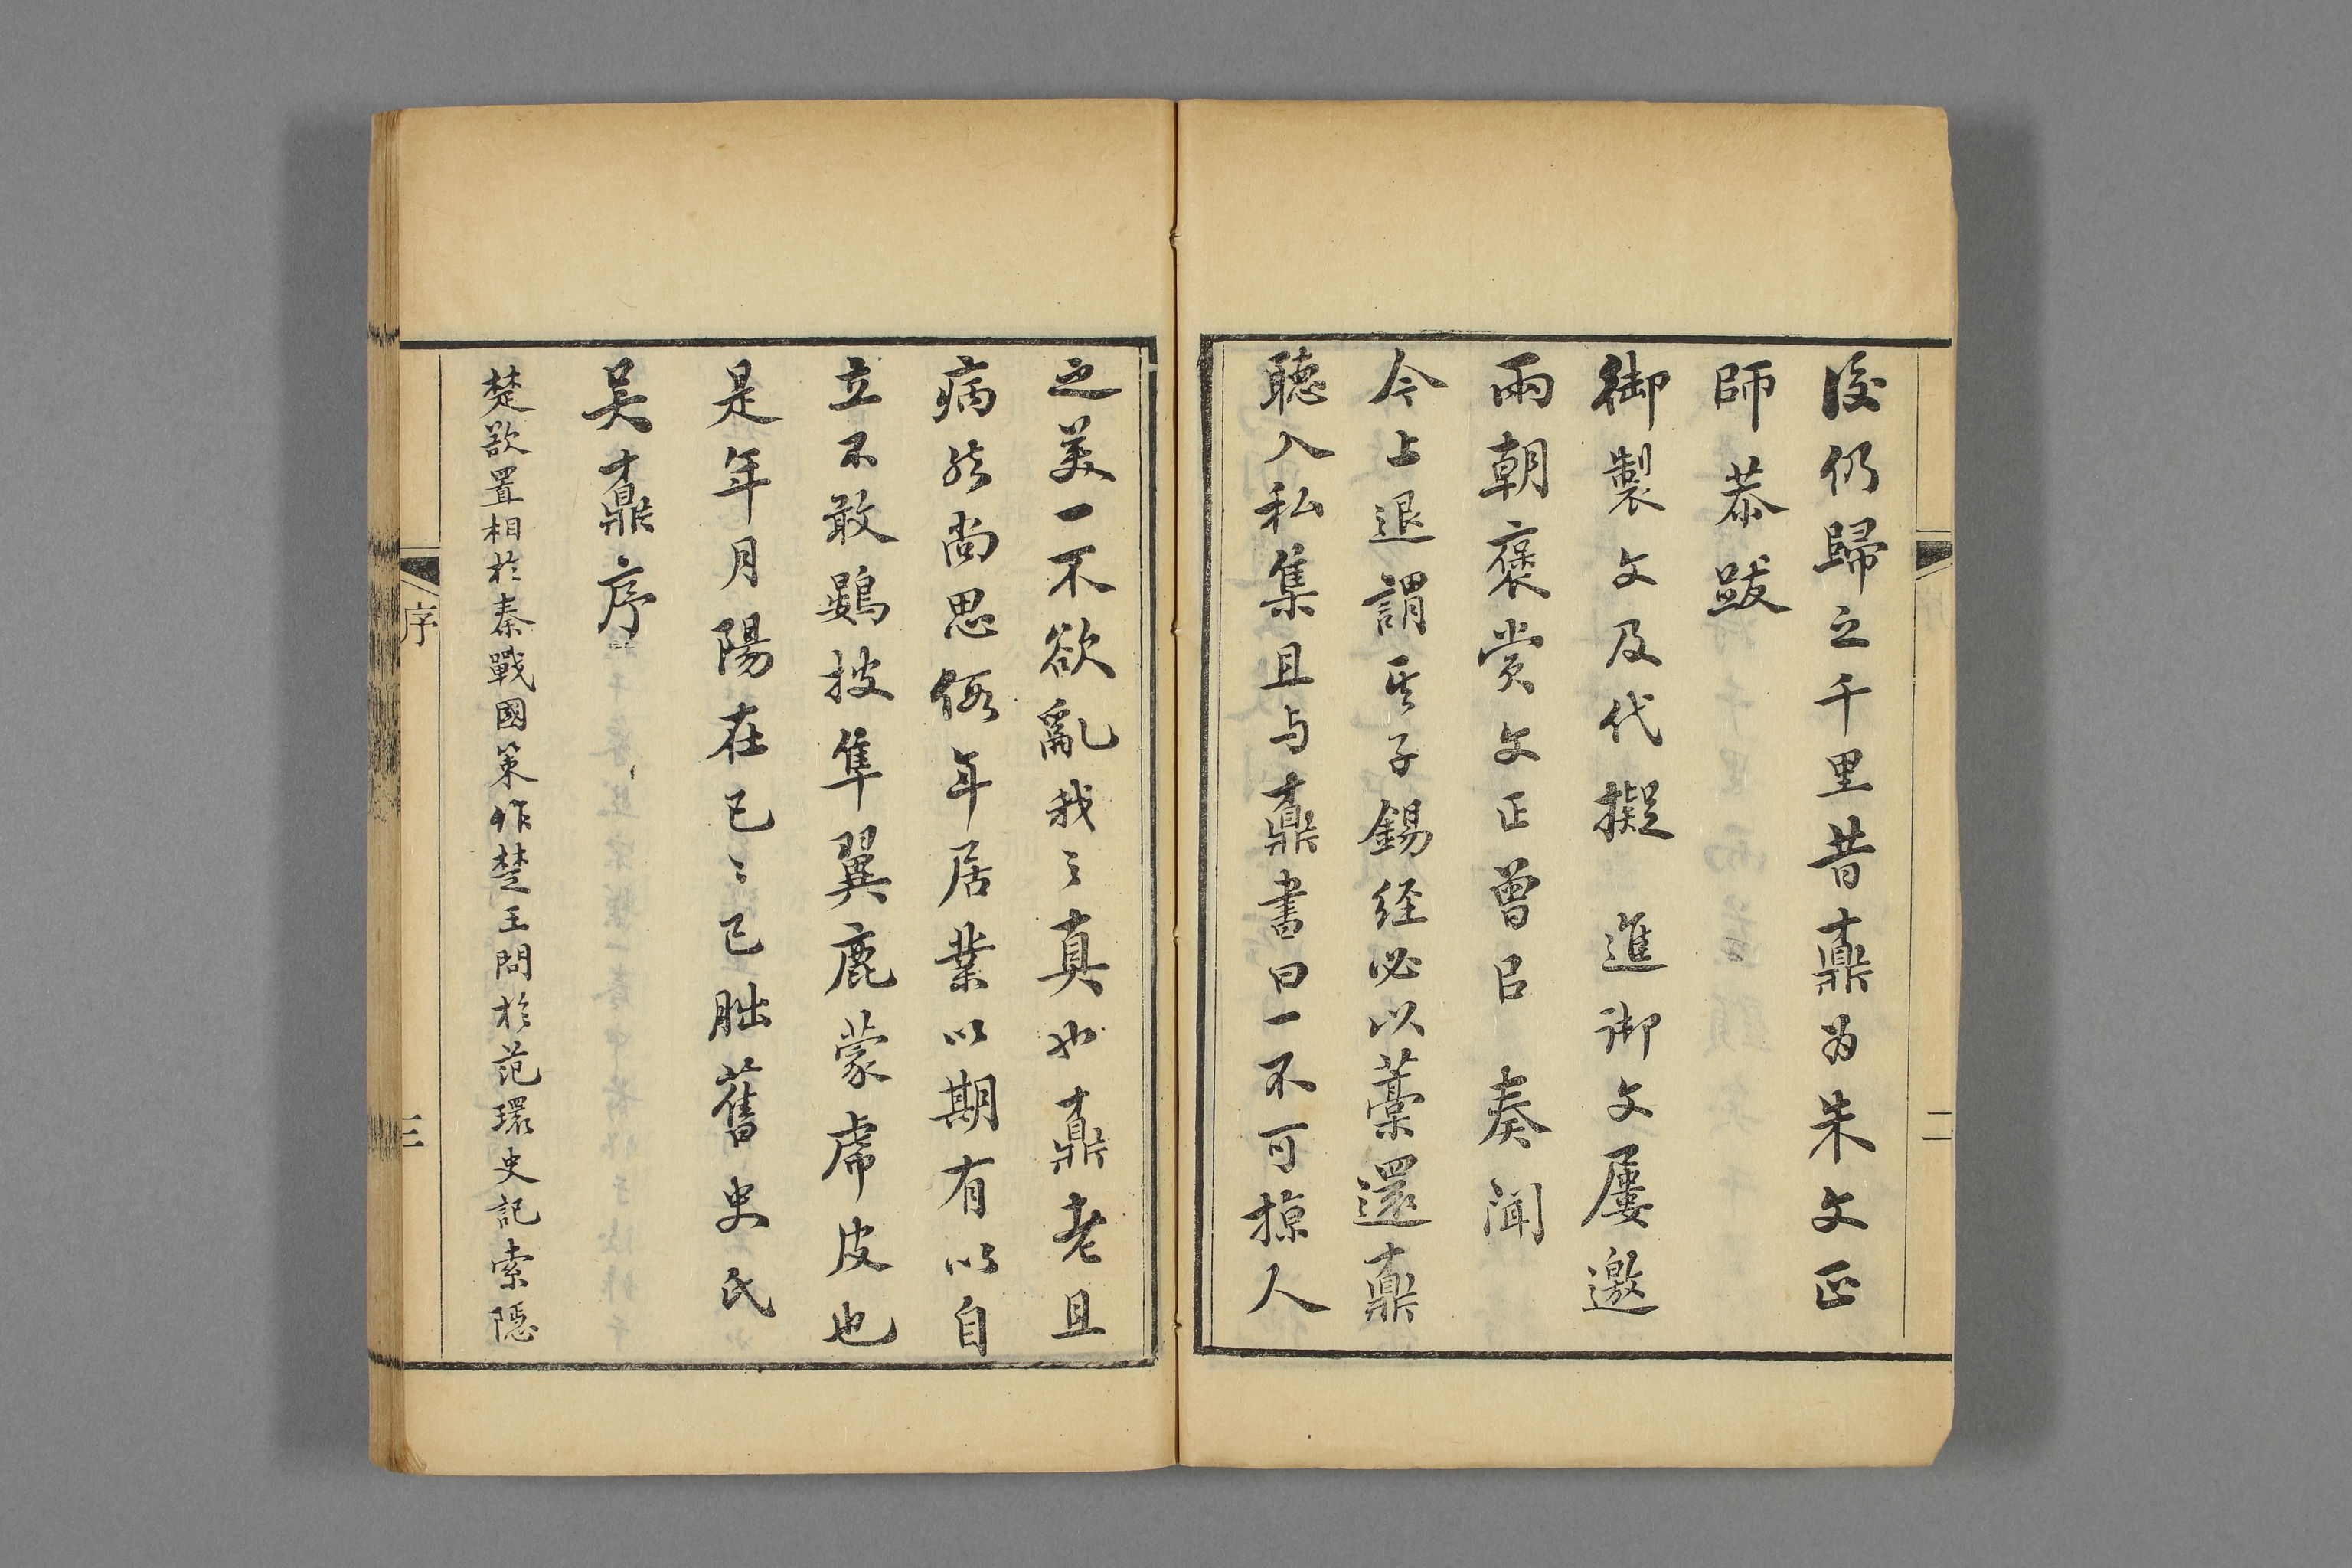 後仍歸之千里昔鼒為朱文正
師恭跋
御製文及代擬　進御文屢邀
兩朝褒赏文正曾㠯　奏聞
今上退謂其子錫经必以藁還鼒
聽入私集且与鼒書曰一不可掠人
之美一不欲亂我〻真也鼒老且
病然尚思假年居業以期有以自
立不敢鷃披隼翼鹿蒙虎皮也
是年月陽在已〻已朏舊史氏
吴鼒序
楚欲置相於秦戰國策作楚王問於范環史記索隱
序
三
二